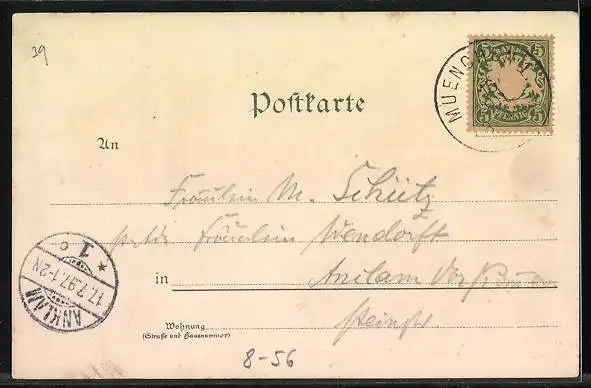 39
BAYERN
5 5
PFENNIG
5 5
MUENCHEN
Postkarte
An
Fräulein M. Schütz
Fräulein Wendorff
in Anklam
Wohnung
(Straße und Hausnummer)
ANKLAM
17.7.97.1-2N
* 1 o
8-56